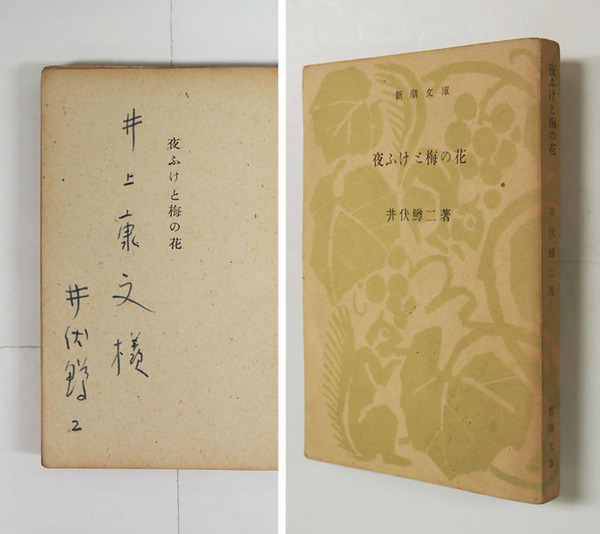 夜ふけと梅の花
井上康文様
井伏鱒二
新潮文庫
夜ふけと梅の花
井伏鱒二著
夜ふけと梅の花
井伏鱒二著
新潮文庫